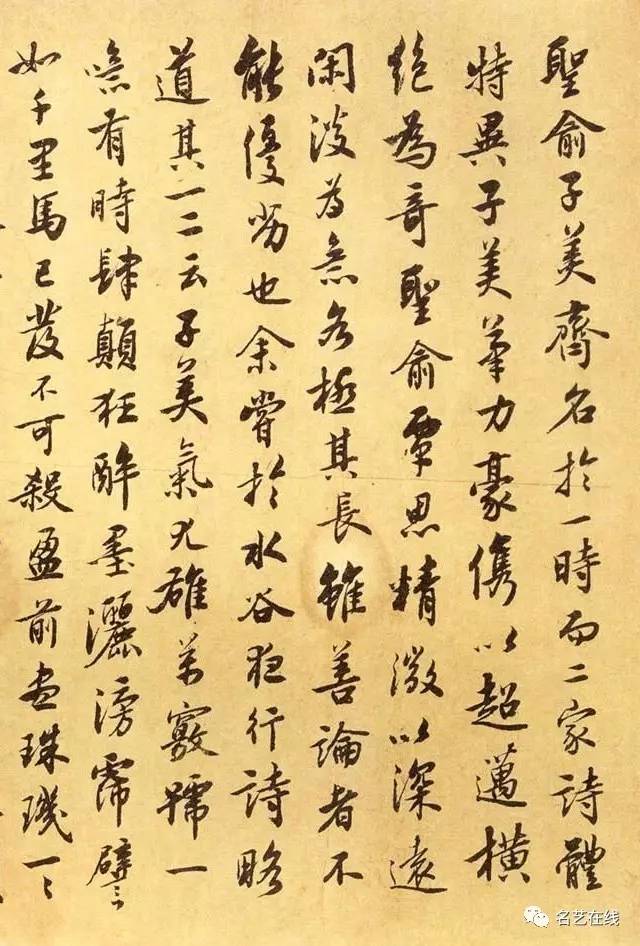 聖俞子美齊名於一時而二家詩體
特異子美筆力豪儁以超邁橫
絕為奇聖俞覃思精微以深遠
閑淡為意各極其長雖善論者不
能優劣也余嘗於水谷夜行詩略
道其一二云子美氣尤雄萬竅號一
噫有時肆顛狂醉墨灑滂霈譬
如千里馬已發不可殺盈前盡珠璣一々
名艺在线